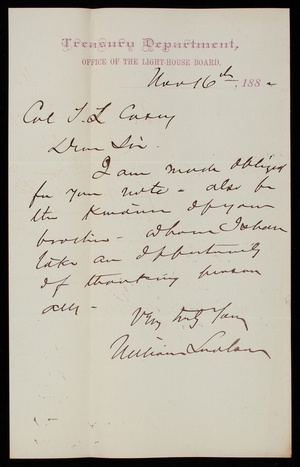 Treasury Department,
OFFICE OF THE LIGHT-HOUSE BOARD,
Nov 16th, 188
Col T. L Casey
Dear Sir
I am much obliged
for your note - also for
the kindness of your
brother - whom I shall
take an opportunity
of thanking person
ally -
Very truly Yours
William Ludlow